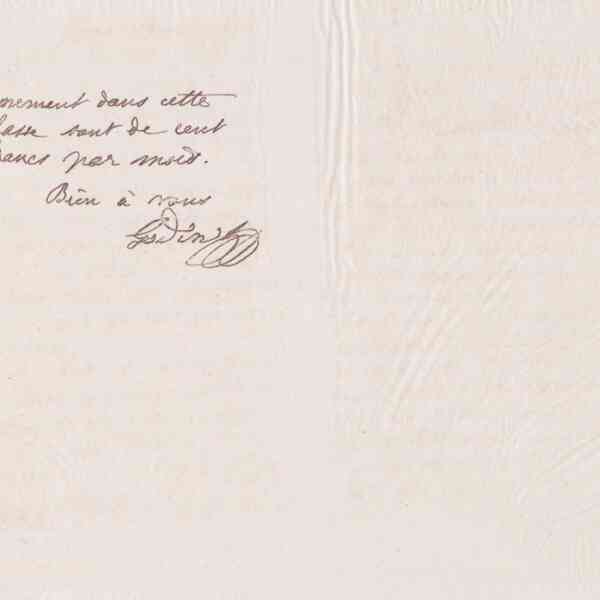 nement dans cette
lasse sont de cent
francs par mois.
Bien à vous
Godin